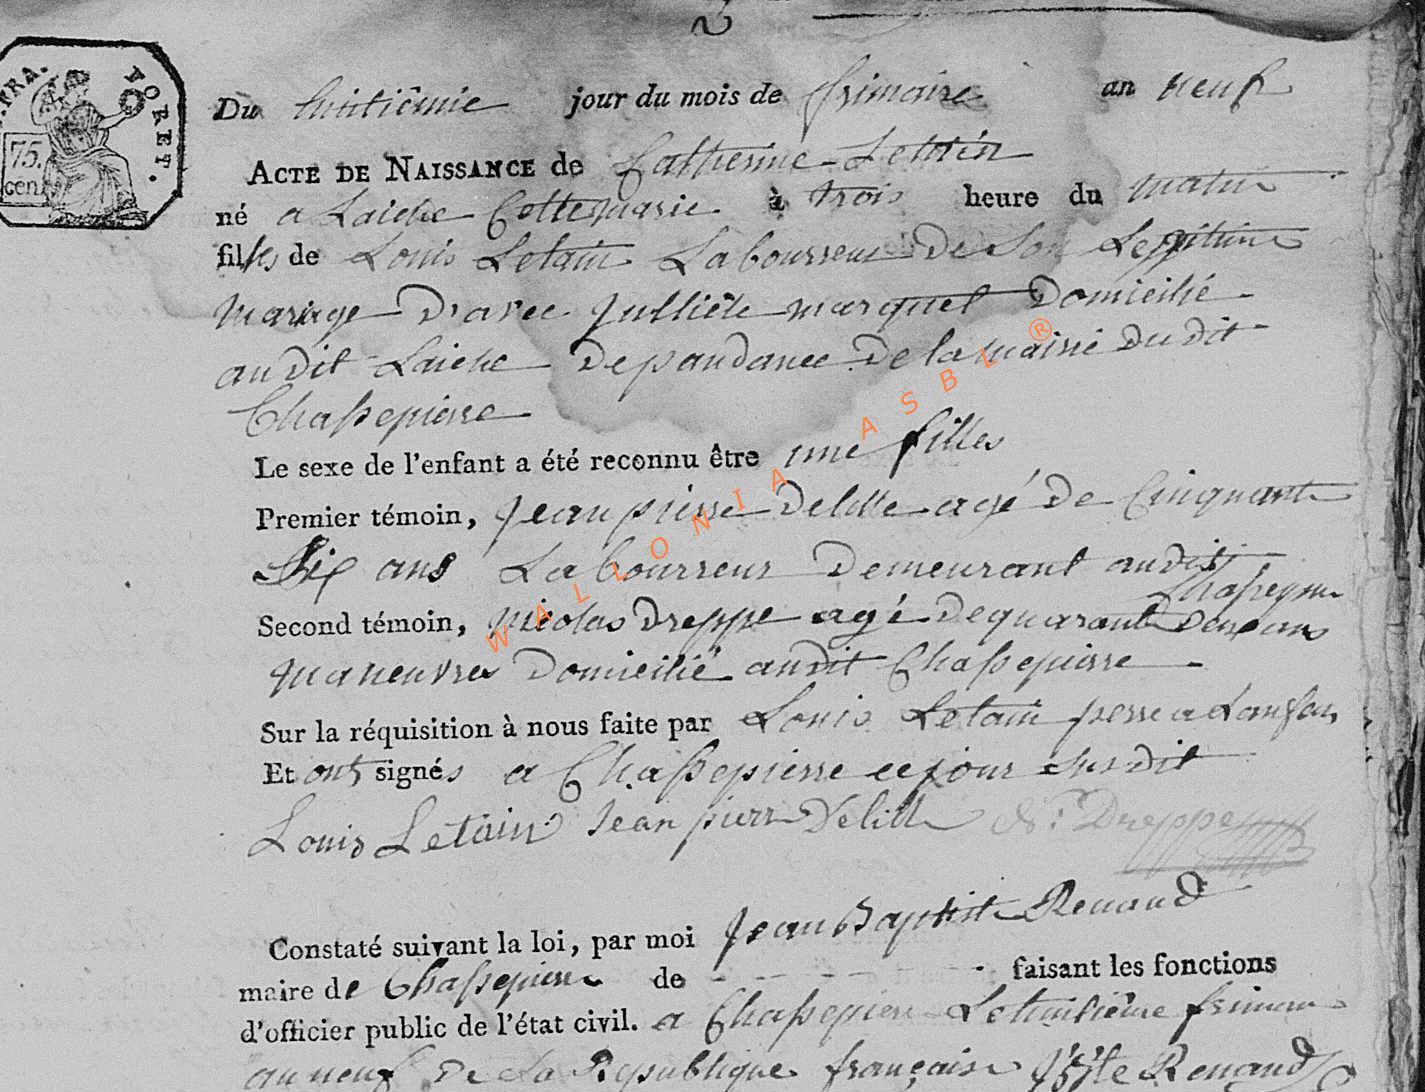 2
TRA. TORET.
75. cen.
Du huitiême jour du mois de frimaire an neuf
ACTE DE NAISSANCE de Catherine Letain
né a Laiche Cettemarie à trois heure du matin
filles de Louis Letain Labourreur De Son Legitime
mariage D'avec Julliêtte marquet Domicilié
au Dit Laiche Dependance De la mairie Du dit
Chassepierre
Le sexe de l'enfant a été reconnu être une filles
Premier témoin, Jean pierre Delille agé De Cinquant
Six ans Labourreur Demeurant au dit Chassepierre
Second témoin, Nicolas Dreppe agé De quarant Deux ans
maneuvres Domicilié au dit Chassepierre
Sur la réquisition à nous faite par Louis Letain perre a Lanfan
Et ont signés a Chassepierre ce jour susdit
Louis Letain Jean pierre Delille N: Dreppe
Constaté suivant la loi, par moi Jean Baptist Renaud
maire de Chassepierre de faisant les fonctions
d'officier public de l'état civil. a Chassepierre Le huitieme frimaire
an neuf De La Republique française J Bte Renaud
WALLONIA ASBL ®